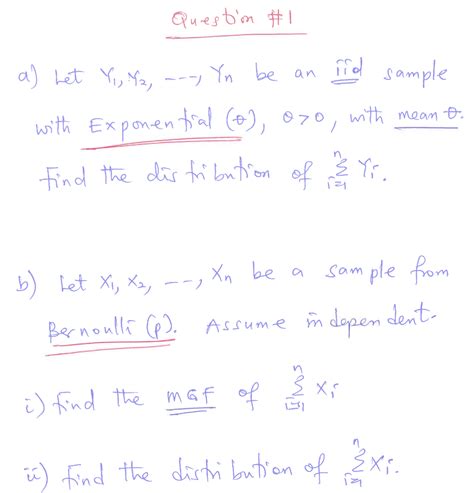 Question #1
a) Let Y₁, Y₂, ---, Yn be an iid sample
with Exponential (θ), θ>0, with mean θ.
Find the distribution of ⁿΣᵢ₌₁ Yᵢ.
b) Let X₁, X₂, ---, Xn be a sample from
Bernoulli (p). Assume independent.
i) find the MGF of ⁿΣᵢ₌₁ Xᵢ
ii) find the distribution of ⁿΣᵢ₌₁ Xᵢ.